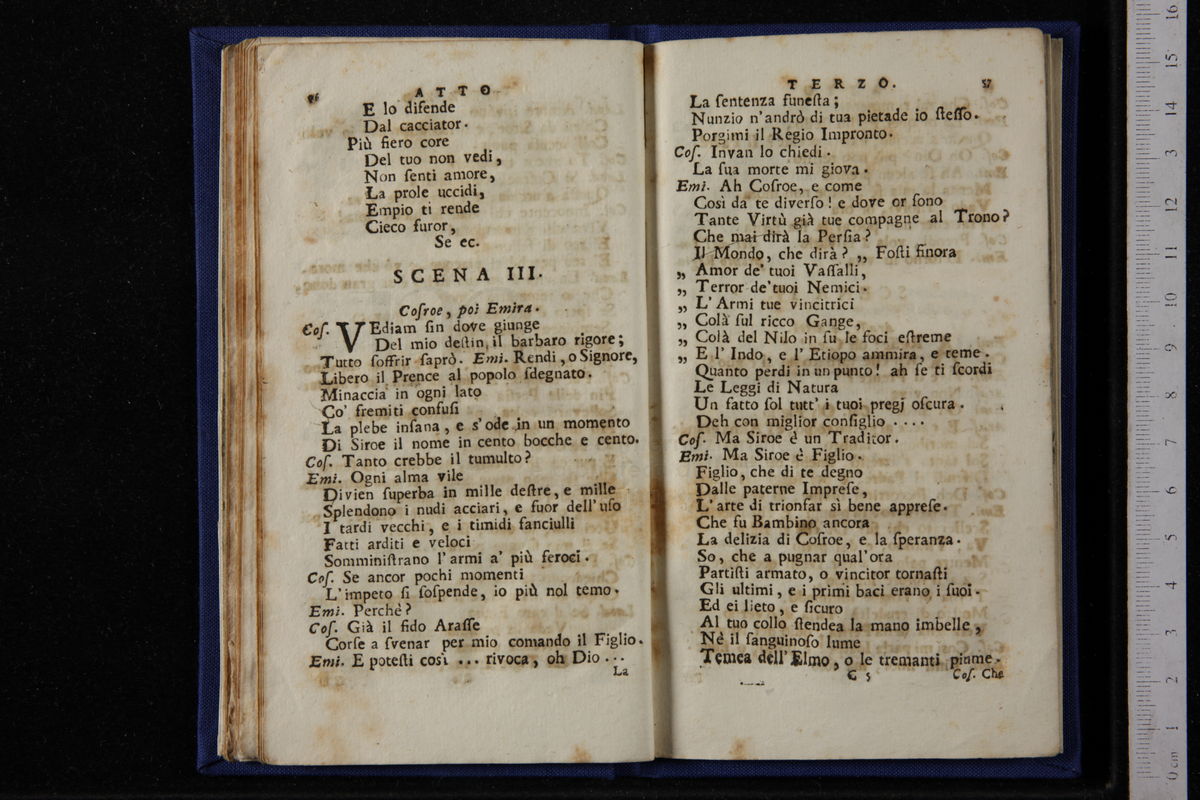 56 ATTO
E lo difende
Dal cacciator.
Più fiero core
Del tuo non vedi,
Non ſenti amore,
La prole uccidi,
Empio ti rende
Cieco furor,
Se ec.
SCENA III.
Coſroe, poi Emira.
Coſ. VEdiam ſin dove giunge
Del mio deſtin il barbaro rigore;
Tutto ſoffrir ſaprò. Emi. Rendi, o Signore,
Libero il Prence al popolo ſdegnato.
Minaccia in ogni lato
Co' fremiti confuſi
La plebe inſana, e s'ode in un momento
Di Siroe il nome in cento bocche e cento.
Coſ. Tanto crebbe il tumulto?
Emi. Ogni alma vile
Divien ſuperba in mille deſtre, e mille
Splendono i nudi acciari, e fuor dell'uſo
I tardi vecchi, e i timidi fanciulli
Fatti arditi e veloci
Somminiſtrano l'armi a' più feroci.
Coſ. Se ancor pochi momenti
L'impeto ſi ſoſpende, io più nol temo.
Emi. Perchè?
Coſ. Già il fido Araſſe
Corſe a ſvenar per mio comando il Figlio.
Emi. E poteſti così ... rivoca, oh Dio ...
La
TERZO. 57
La ſentenza funeſta;
Nunzio n'andrò di tua pietade io ſteſſo.
Porgimi il Regio Impronto.
Coſ. Invan lo chiedi.
La ſua morte mi giova.
Emi. Ah Coſroe, e come
Così da te diverſo! e dove or ſono
Tante Virtù già tue compagne al Trono?
Che mai dirà la Perſia?
Il Mondo, che dirà? „ Foſti finora
„ Amor de' tuoi Vaſſalli,
„ Terror de' tuoi Nemici.
„ L'Armi tue vincitrici
„ Colà ſul ricco Gange,
„ Colà del Nilo in ſu le foci eſtreme
„ E l'Indo, e l'Etiopo ammira, e teme.
Quanto perdi in un punto! ah ſe ti ſcordi
Le Leggi di Natura
Un fatto ſol tutt' i tuoi pregj oſcura.
Deh con miglior conſiglio ....
Coſ. Ma Siroe è un Traditor.
Emi. Ma Siroe è Figlio.
Figlio, che di te degno
Dalle paterne Impreſe,
L'arte di trionfar sì bene appreſe.
Che fu Bambino ancora
La delizia di Coſroe, e la ſperanza.
So, che a pugnar qual'ora
Partiſti armato, o vincitor tornaſti
Gli ultimi, e i primi baci erano i ſuoi.
Ed ei lieto, e ſicuro
Al tuo collo ſtendea la mano imbelle,
Nè il ſanguinoſo lume
Temea dell'Elmo, o le tremanti piume.
C 5 Coſ. Che
0 cm 1 2 3 4 5 6 7 8 9 10 11 12 3 14 15 16